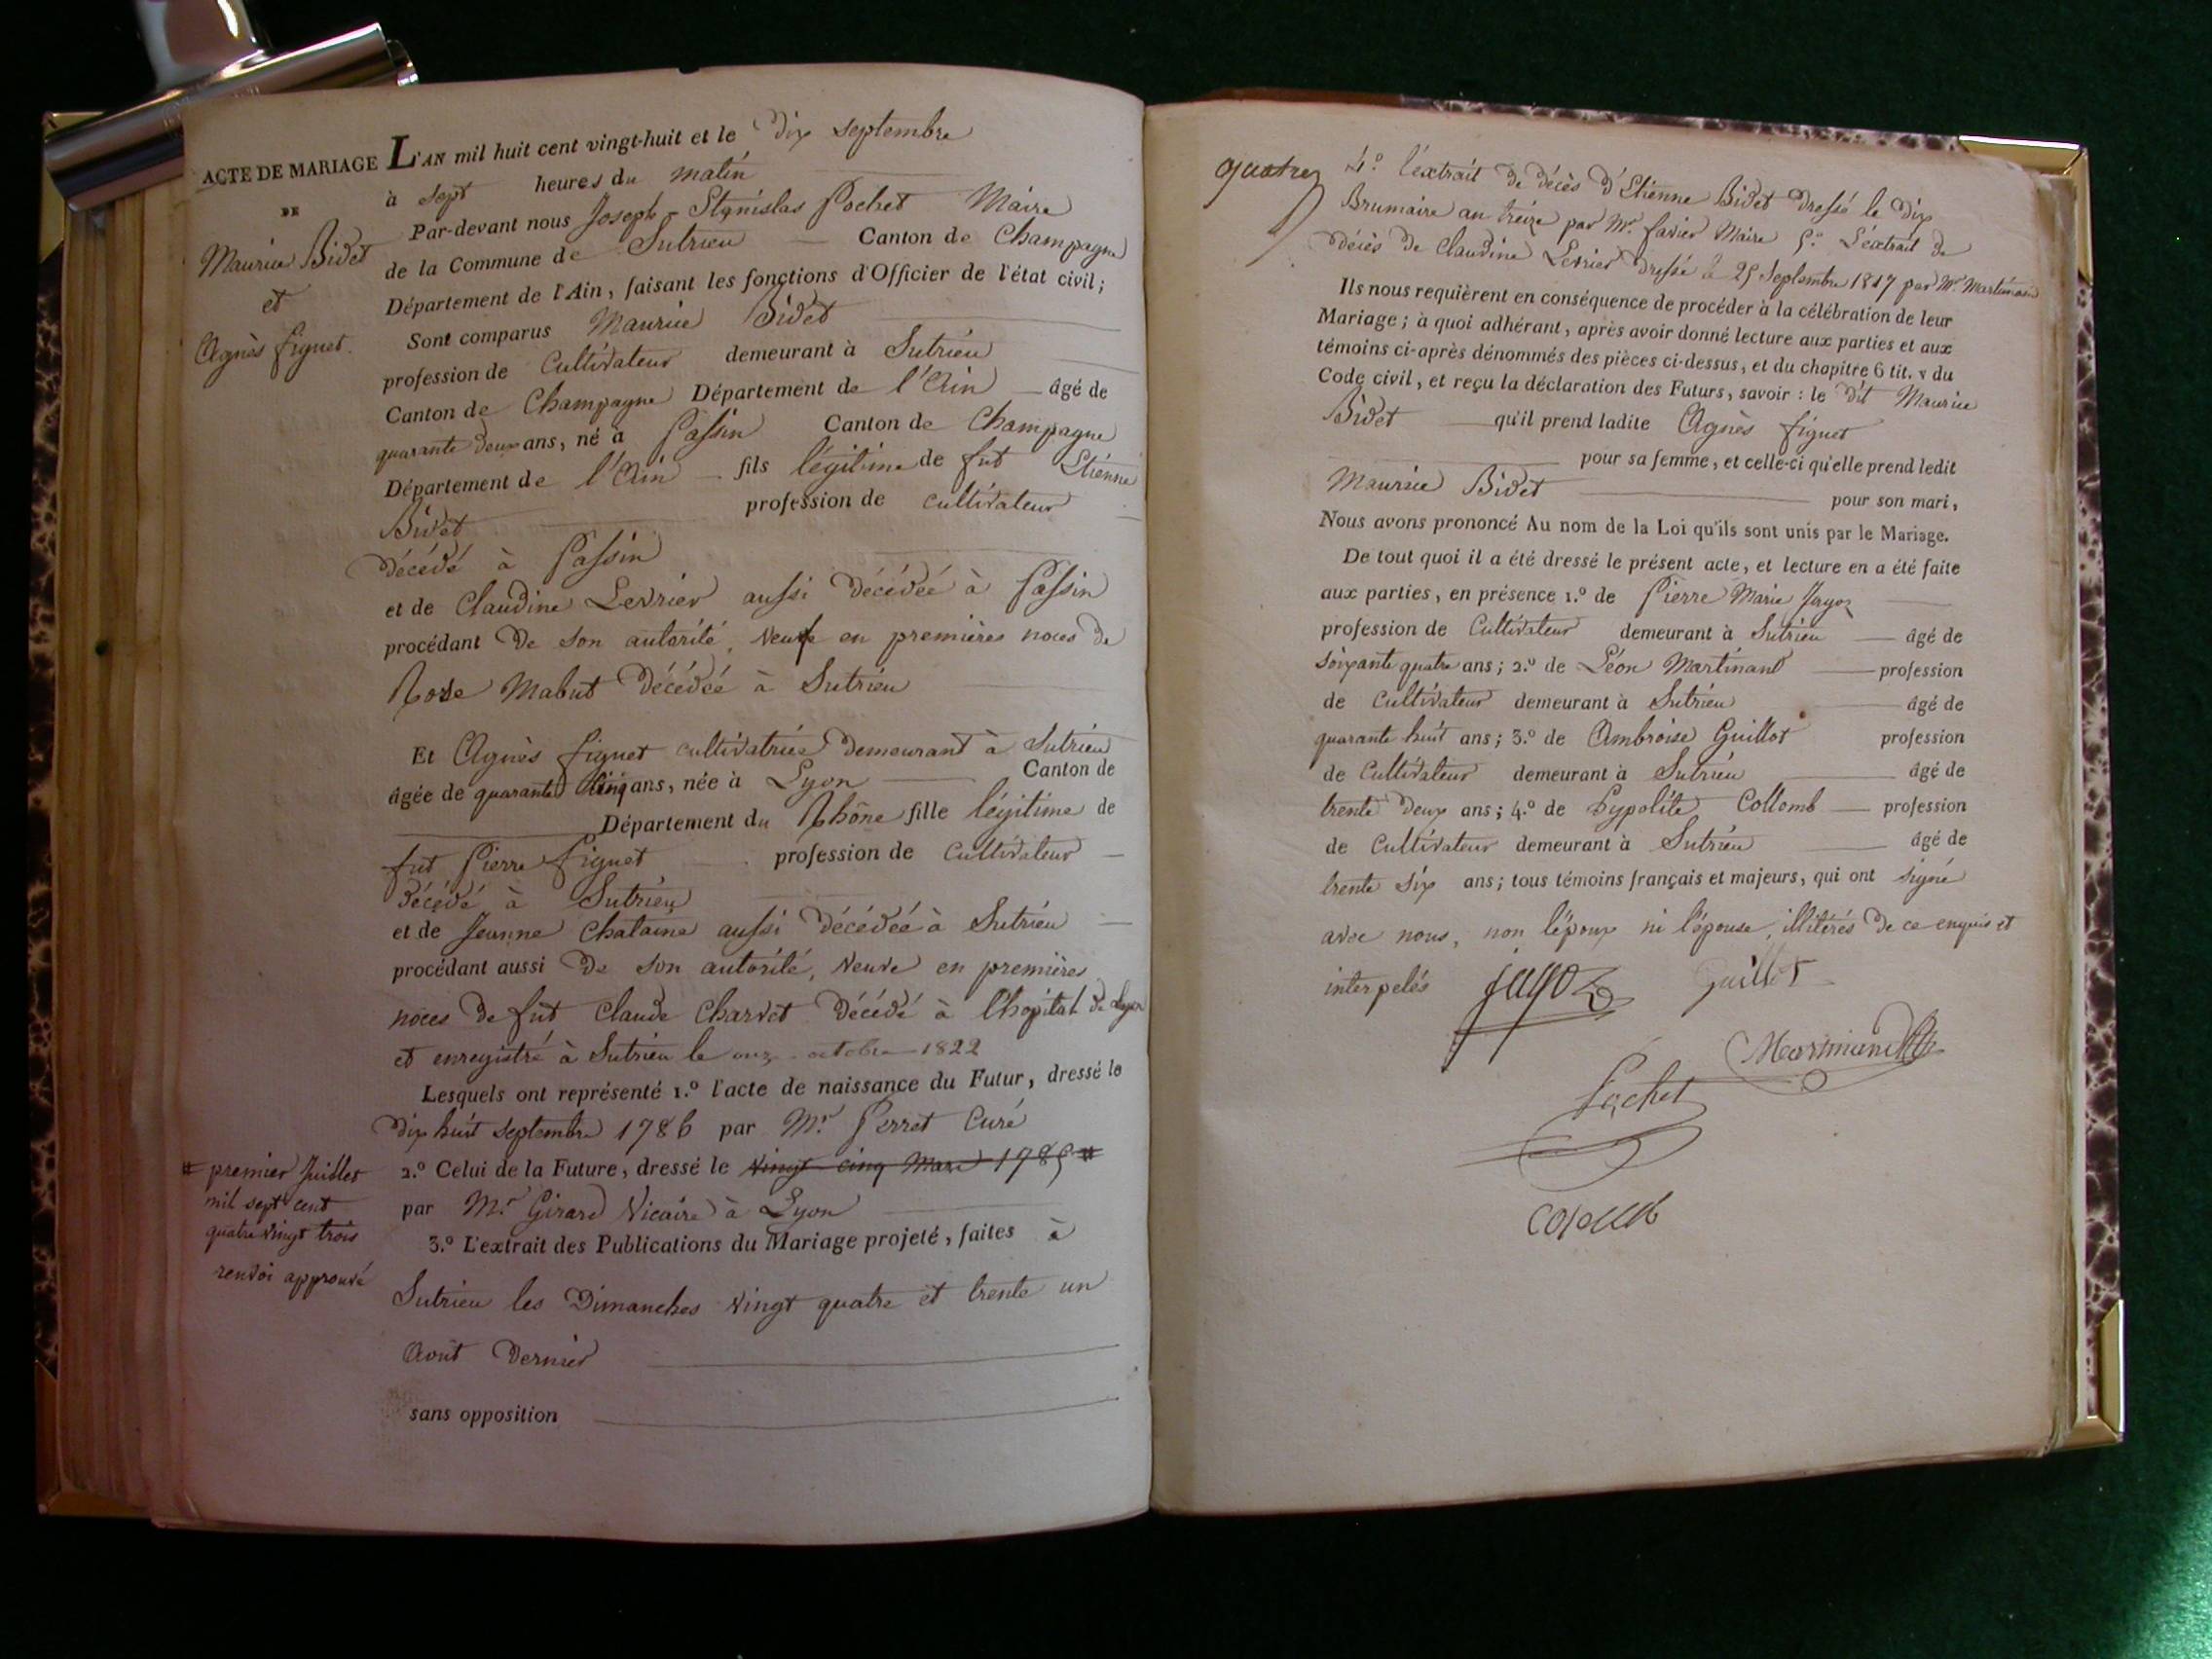 ACTE DE MARIAGE
DE
Maurice Bidet
et
Agnès figuet.
L'AN mil huit cent vingt-huit et le Dix septembre
à sept heures du matin
Par-devant nous Joseph-Stanislas Pochet Maire
de la Commune de Sutrieu Canton de Champagne
Département de l'Ain, faisant les fonctions d'Officier de l'état civil;
Sont comparus Maurice Bidet
profession de Cultivateur demeurant à Sutrieu
Canton de Champagne Département de l'Ain âgé de
quarante deux ans, né à Passin Canton de Champagne
Département de l'Ain fils légitime de fut Etienne
Bidet profession de cultivateur
décédé à Passin
et de Claudine Levrier aussi décédée à Passin
procédant de son autorité, veuf en premières noces de
Rose Mabut décédée à Sutrieu
Et Agnès figuet cultivatrice demeurant à Sutrieu
âgée de quarante cinq ans, née à Lyon Canton de
Département du Rhône fille légitime de
fut Pierre figuet profession de Cultivateur
décédé à Sutrieu
et de Jeanne Chataine aussi décédée à Sutrieu
procédant aussi de son autorité, veuve en premières
noces de fut Claude Charvet décédé à l'hôpital de Lyon
et enregistré à Sutrieu le onze octobre 1822
Lesquels ont représenté 1.º l'acte de naissance du Futur, dressé le
dix huit septembre 1786 par Mr. Perret Curé
2.º Celui de la Future, dressé le vingt-cinq Mars 1785 #
par Mr. Girard Vicaire à Lyon
3.º L'extrait des Publications du Mariage projeté, faites à
Sutrieu les Dimanches vingt quatre et trente un
Août dernier
sans opposition
# premier Juillet
mil sept cent
quatre vingt trois
renvoi approuvé
quatre
4.º l'extrait de décès d'Etienne Bidet dressé le dix
Brumaire an treize par Mr. favier Maire 5.º L'extrait de
décès de Claudine Levrier dressé le 25 Septembre 1817 par Mr. Martinand
Ils nous requièrent en conséquence de procéder à la célébration de leur
Mariage; à quoi adhérant, après avoir donné lecture aux parties et aux
témoins ci-après dénommés des pièces ci-dessus, et du chapitre 6 tit. v du
Code civil, et reçu la déclaration des Futurs, savoir: le dit Maurice
Bidet qu'il prend ladite Agnès figuet
pour sa femme, et celle-ci qu'elle prend ledit
Maurice Bidet pour son mari,
Nous avons prononcé Au nom de la Loi qu'ils sont unis par le Mariage.
De tout quoi il a été dressé le présent acte, et lecture en a été faite
aux parties, en présence 1.º de Pierre Marie Jagoz
profession de Cultivateur demeurant à Sutrieu âgé de
soixante quatre ans; 2.º de Léon Martinand profession
de Cultivateur demeurant à Sutrieu âgé de
quarante huit ans; 3.º de Ambroise Guillot profession
de Cultivateur demeurant à Sutrieu âgé de
trente deux ans; 4.º de hypolite Collomb profession
de Cultivateur demeurant à Sutrieu âgé de
trente six ans; tous témoins français et majeurs, qui ont signé
avec nous, non l'époux ni l'épouse, illitérés de ce enquis et
interpelés jagoz Guillot
Martinand
Pochet